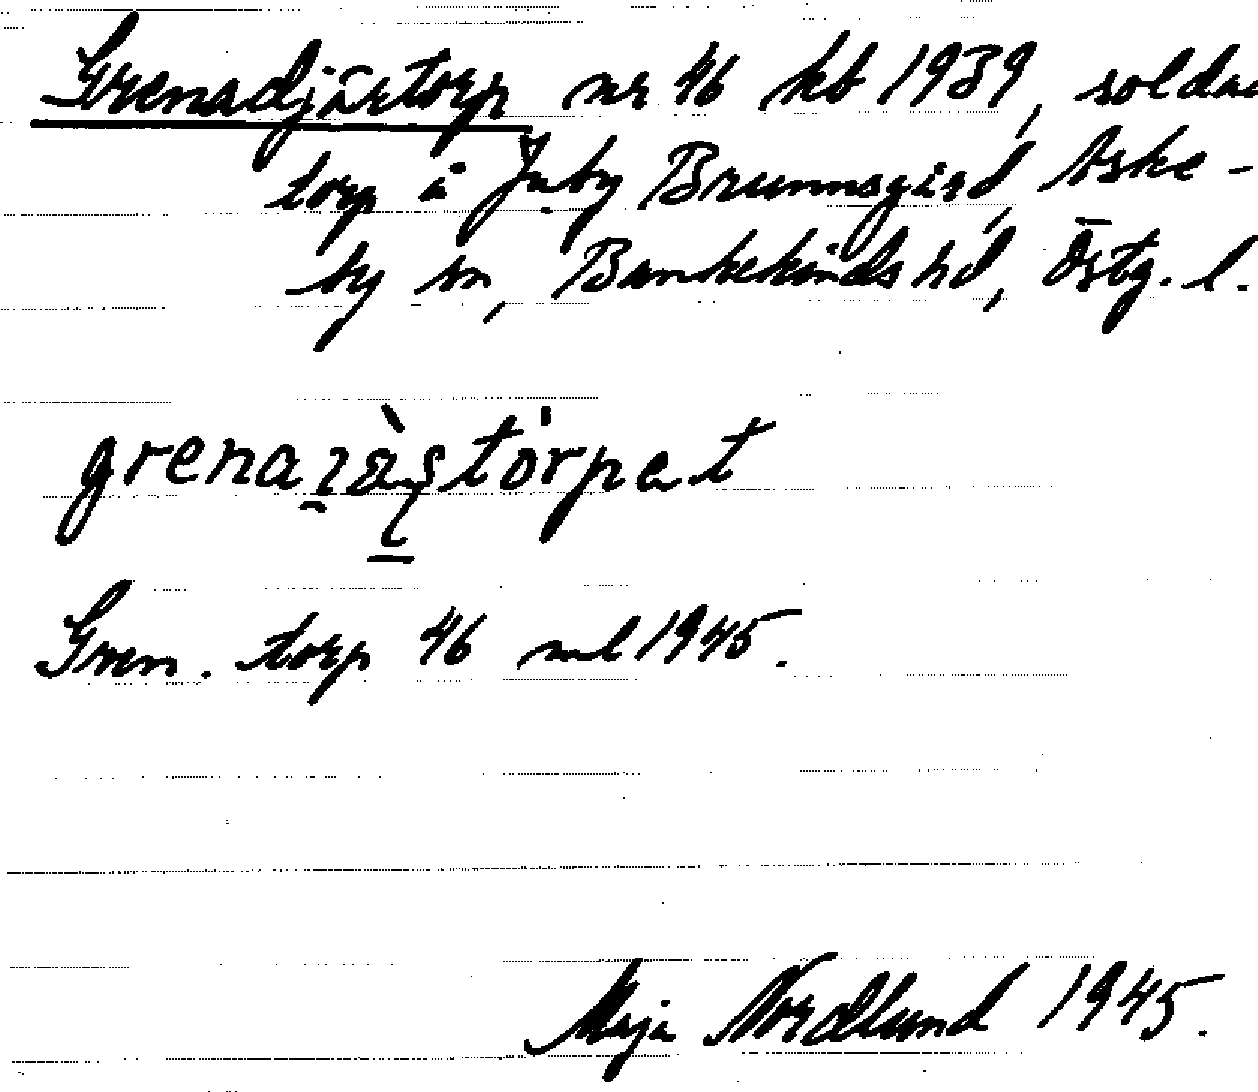 Grenadjärtorp nr 46 kb 1939, solda
torp å Juby Brunnsgård, Aske-
by sn, Bankekinds hd, Östg. l.
grenaɿä̀ʂtȯrpet
Gren. torp 46 ml 1945.
Maja Nordlund 1945.